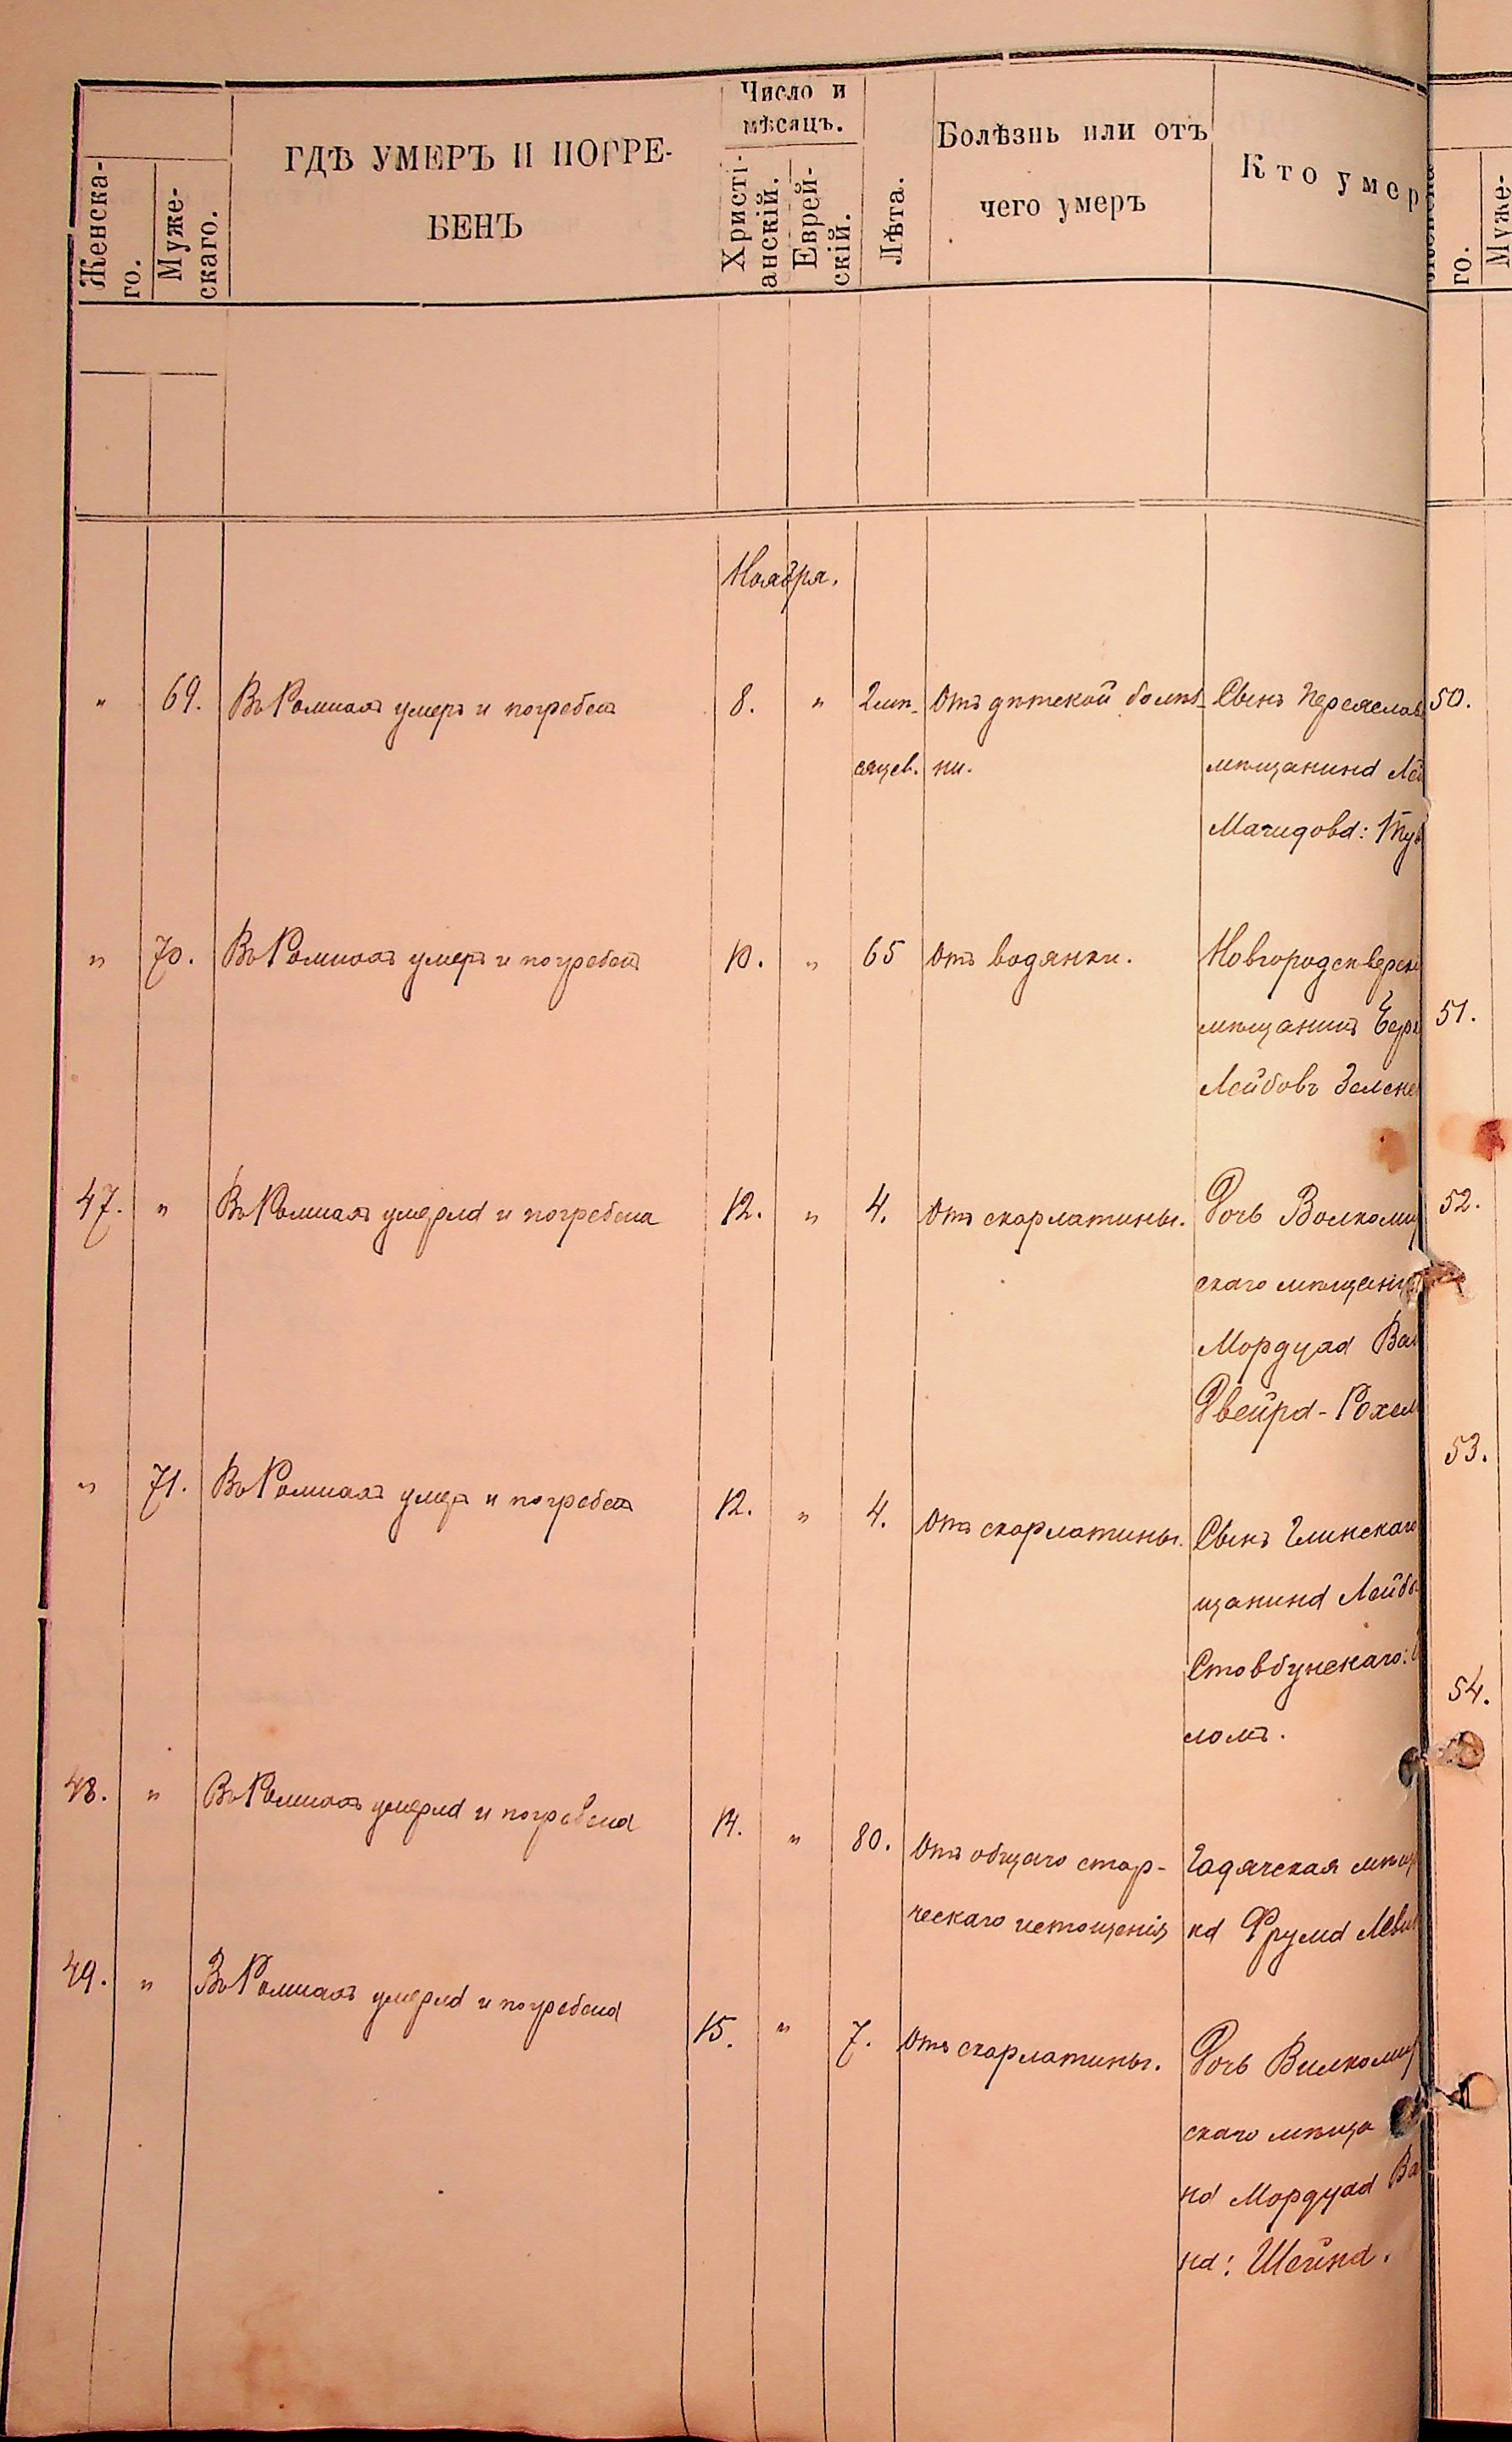 Женска-
го.
Муже-
скаго.
ГДѢ УМЕРЪ И ПОГРЕ-
БЕНЪ
Число и
мѣсяцъ.
Христі-
анскій.
Еврей-
скій.
Лѣта.
Болѣзнь или отъ
чего умеръ
Кто умер
го.
Муже-
Ноября.
" 69. Въ Ромнахъ умеръ и погребенъ 8. " 2 мѣ- Отъ дѣтской болѣз- Сынъ Переяслов 50.
сяцев. ни. мѣщанина Ле
Мачидова: Ту
" 70. Въ Ромнахъ умеръ и погребенъ 10. " 65 Отъ водянки. Новгородсѣверск
мѣщанинъ Бер 51.
Лейбовъ Зелене
47. " Въ Ромнахъ умерла и погребена 12. " 4. Отъ скарлатины. Дочь Волкоми 52.
скаго мѣщани
Мордуха Ва
Двейра-Рохел
53.
" 71. Въ Ромнахъ умеръ и погребенъ 12. " 4. Отъ скарлатины. Сынъ Глинскаго
щанина Лейбы
Стовбунскаго:
ломъ. 54.
48. " Въ Ромнахъ умерла и погребена 14. " 80. Отъ общаго стар- Гадячская мѣщ
ческаго истощенія ка Фрума Леви
49. " Въ Ромнахъ умерла и погребена 15. " 7. Отъ скарлатины. Дочь Вилкоми
скаго мѣща
на Мордуха Ва
на: Шейна.